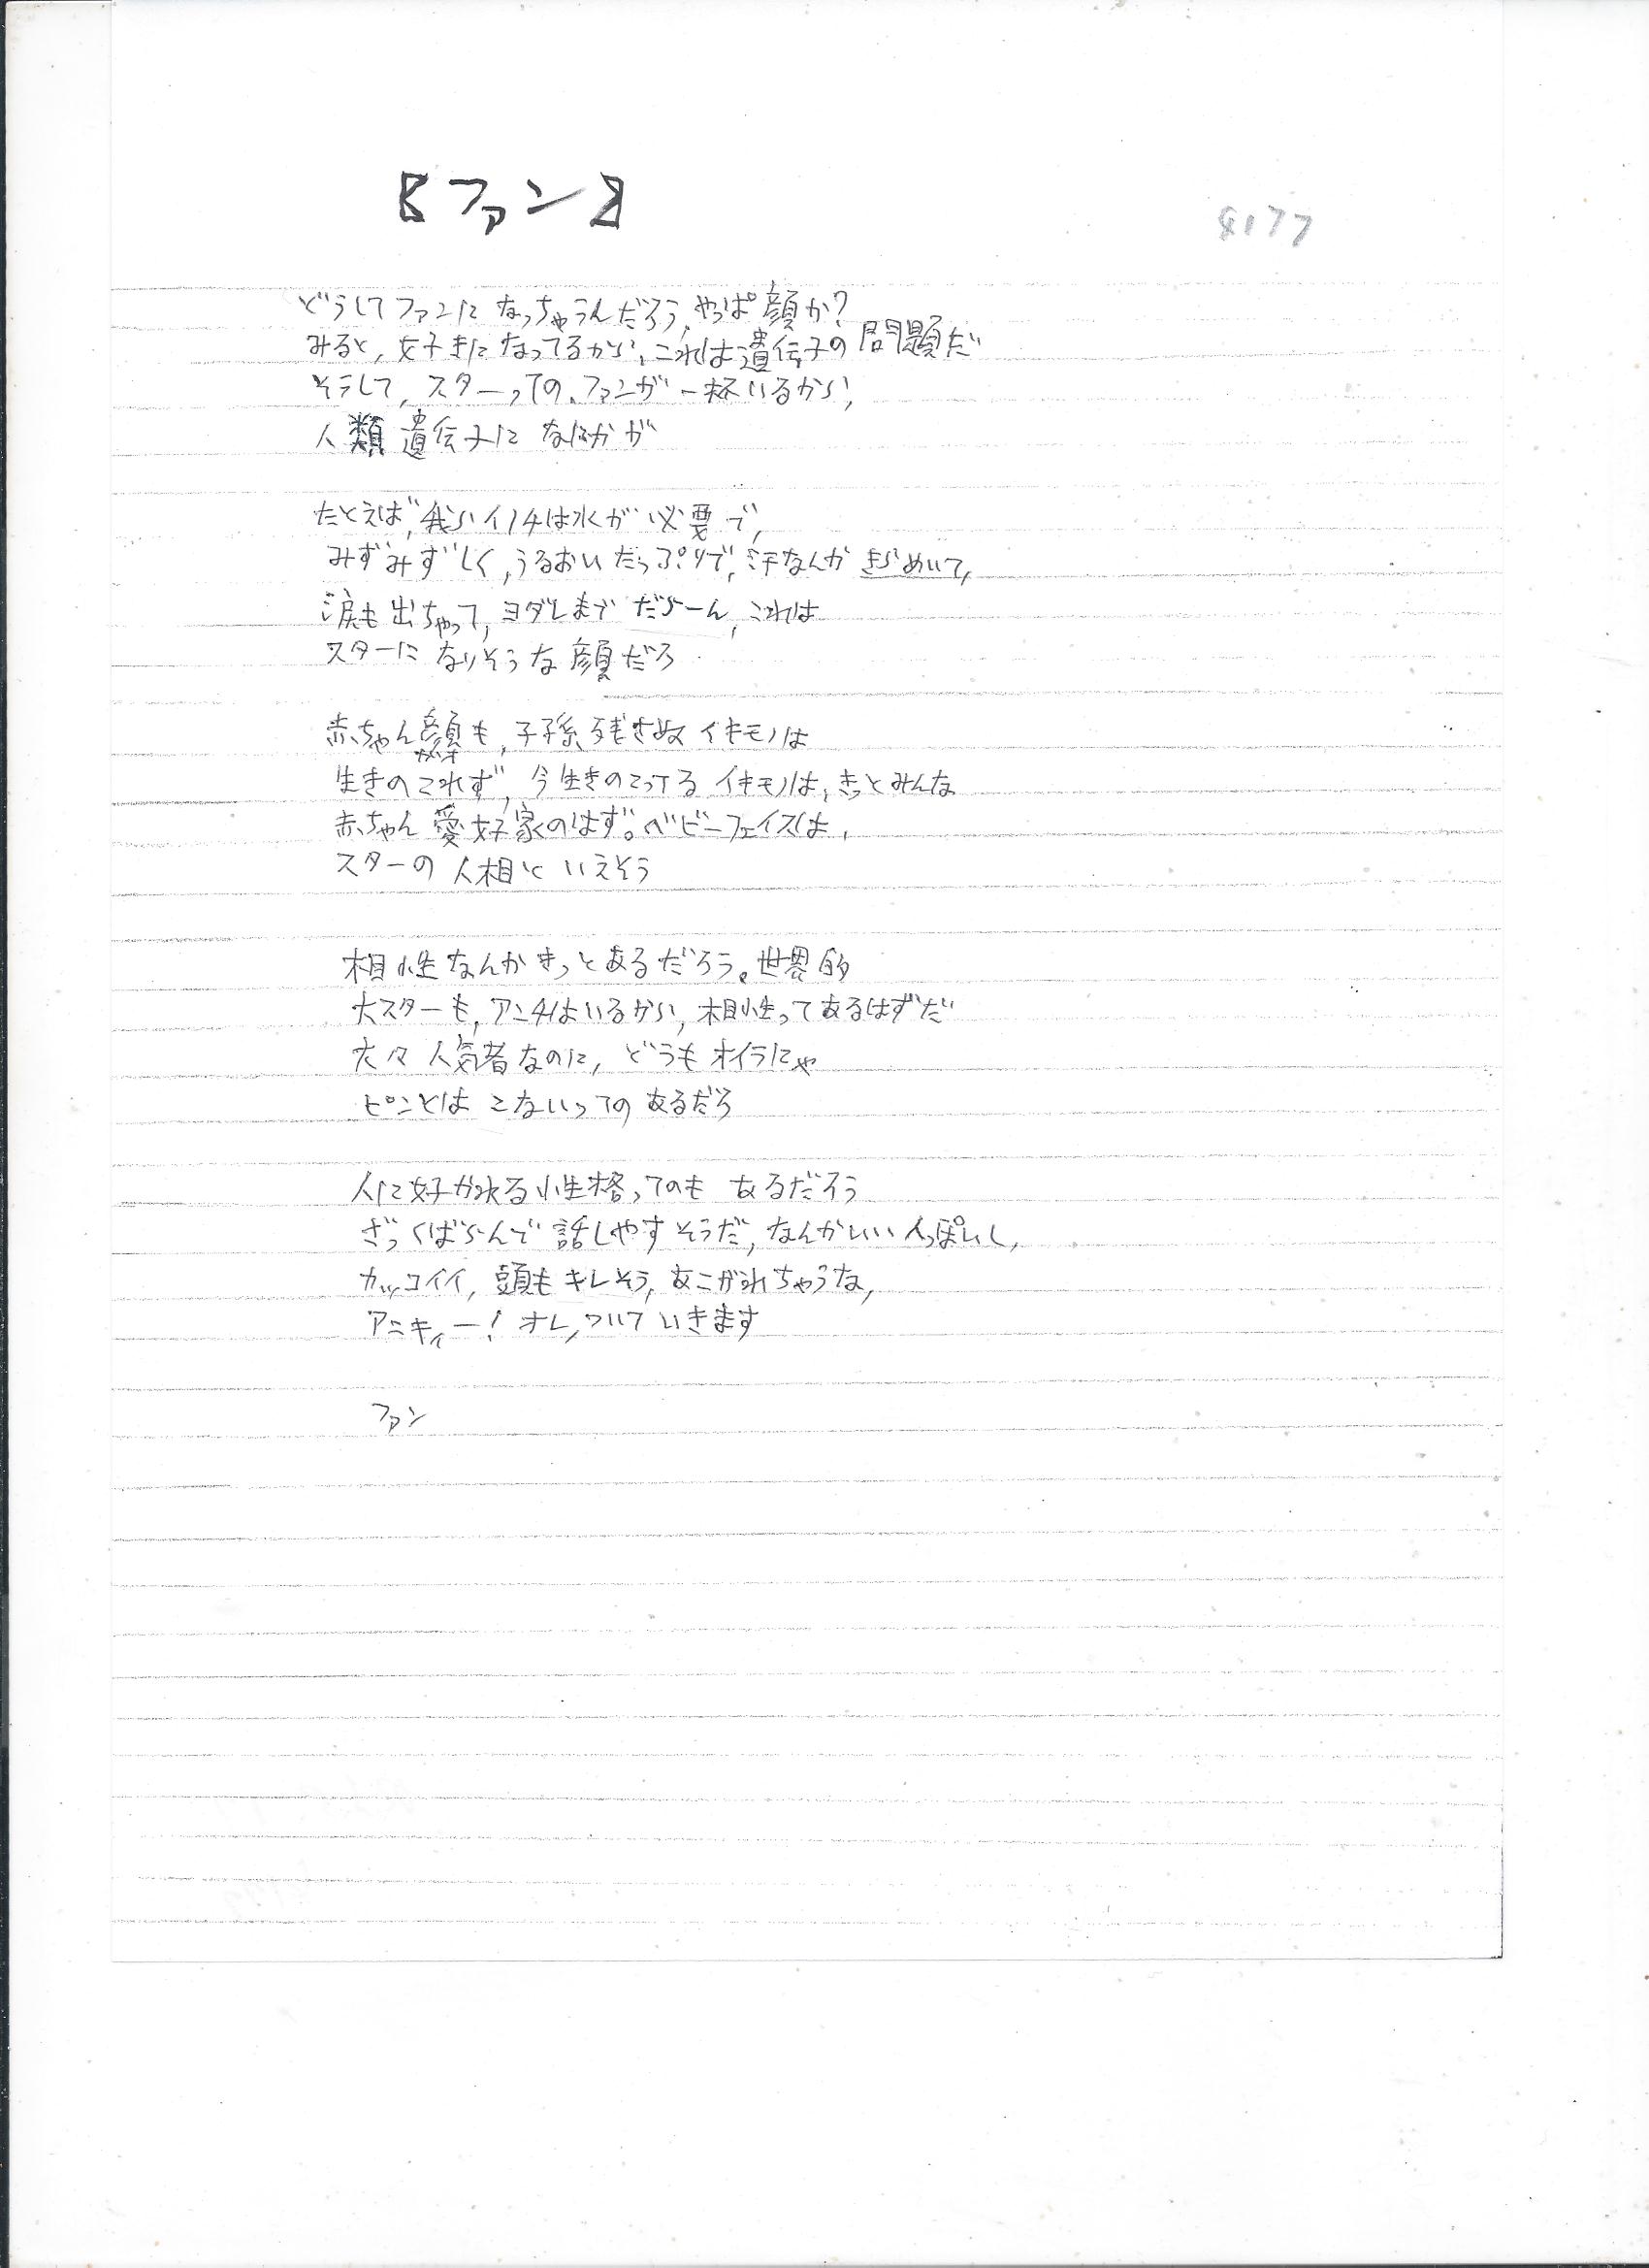 【ファン】
8177
どうしてファンになっちゃうんだろう、やっぱ顔か?
みると、好きになってるから、これは遺伝子の問題だ
そうして、スターっての、ファンが一杯いるから、
人類遺伝子になにかが
たとえば、我らイノチは水が必要で、
みずみずしく、うるおいたっぷりで、汗なんかきらめいて、
涙も出ちゃって、ヨダレまでだらーん、これは
スターになりそうな顔だろ
赤ちゃん顔も、子孫残さぬイキモノは
ガオ
生きのこれず、今生きのこってるイキモノは、きっとみんな
赤ちゃん愛好家のはず。ベビーフェイスは、
スターの人相といえそう
相性なんかきっとあるだろう。世界的
大スターも、アンチはいるから、相性ってあるはずだ
大々人気者なのに、どうもオイラにゃ
ピンとはこないってのあるだろ
人に好かれる性格ってのもあるだろう
ざっくばらんで話しやすそうだ、なんかいい人っぽいし、
カッコイイ、頭もキレそう、あこがれちゃうな、
アニキィー!オレ、ついていきます
ファン